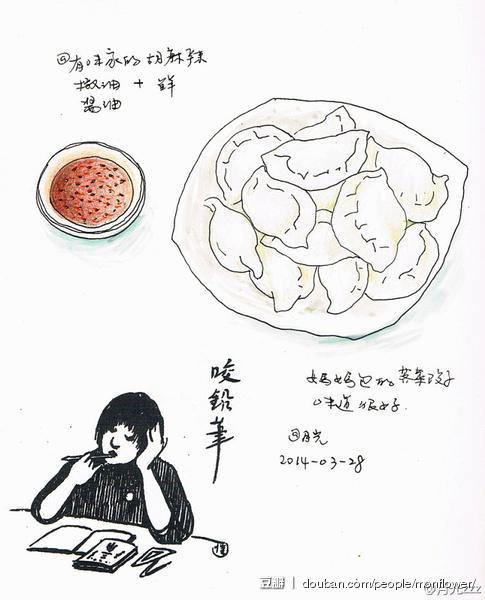 @有味家的胡麻辣
椒油 + 鲜
酱油
咬鉛筆
妈妈包的荠菜饺子
味道很好.
@月光
2014-03-28
豆瓣 | douban.com/people/monflower/
@月光zzz